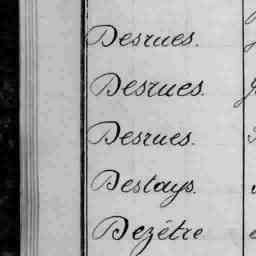 Desrues.
Desrues.
Desrues.
Destays.
Dezêtre